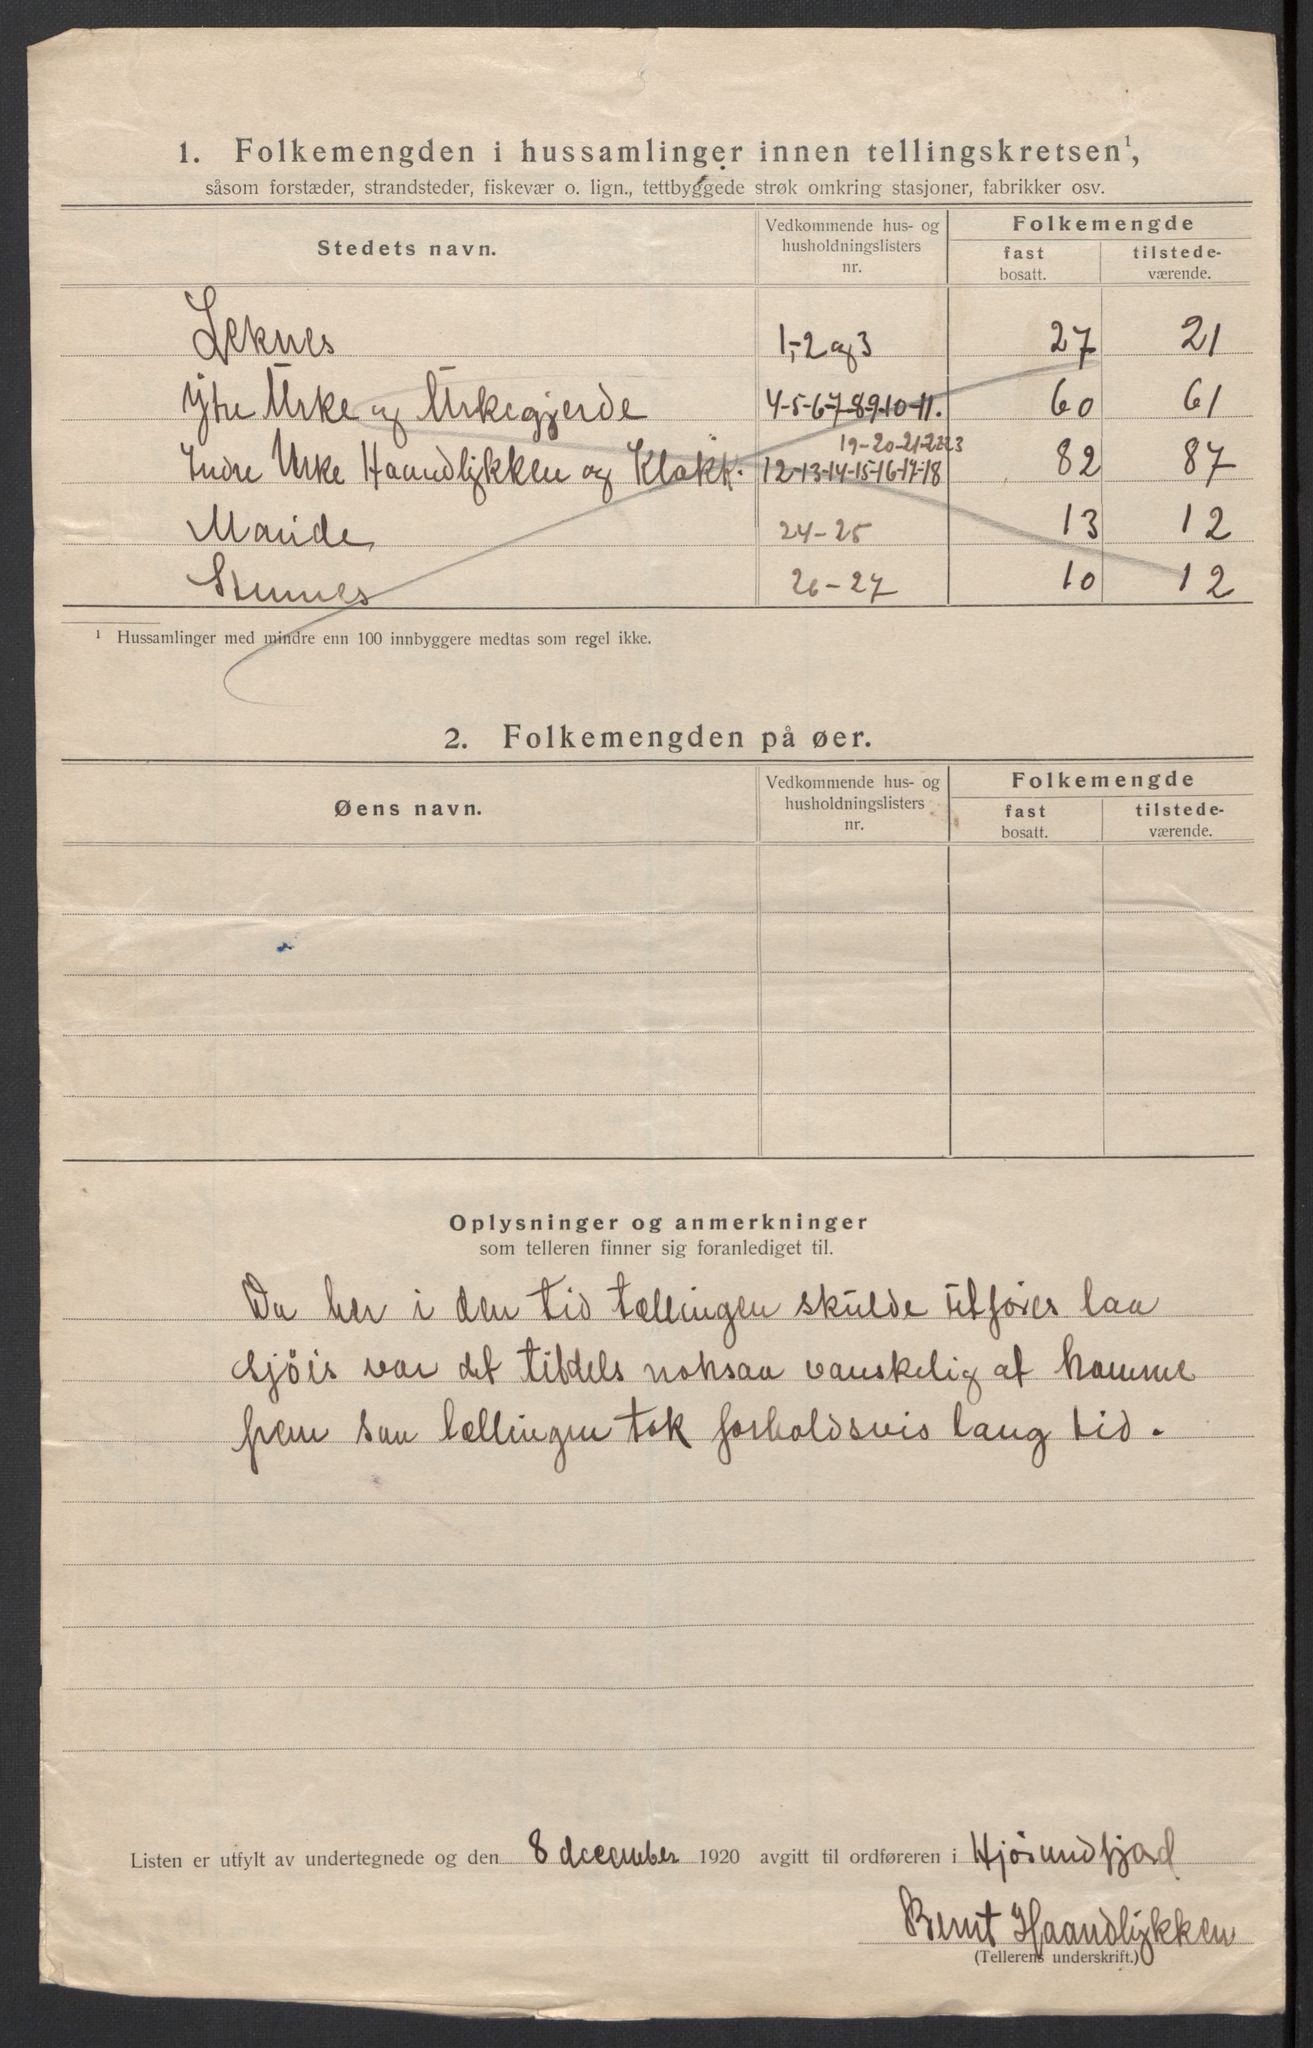 1. Folkemengden i hussamlinger innen tellingskretsen¹,
såsom forstæder, strandsteder, fiskevær o. lign., tettbyggede strøk omkring stasjoner, fabrikker osv.
Stedets navn. Vedkommende hus- og husholdningslisters nr. Folkemengde
fast bosatt. tilstede-værende.
Leknes 1,-2 og 3 27 21
Ytre Urke og Urkegjerde 4-5-6-7-8-9-10-11. 60 61
19-20-21-22-23
Indre Urke Haandlykken og Klokk. 12-13-14-15-16-17-18 82 87
24-25 13 12
26-27 10 12
¹ Hussamlinger med mindre enn 100 innbyggere medtas som regel ikke.
2. Folkemengden på øer.
Øens navn. Vedkommende hus- og husholdningslisters nr. Folkemengde
fast bosatt. tilstede-værende.
Oplysninger og anmerkninger
som telleren finner sig foranlediget til.
Da her i den tid tællingen skulde utføres laa
sjøis var det tildels noksaa vanskelig at komme
frem saa tællingen tok forholdsvis lang tid.
Listen er utfylt av undertegnede og den 8 december 1920 avgitt til ordføreren i Hjørundfjord
Bernt Haandlykken
(Tellerens underskrift.)